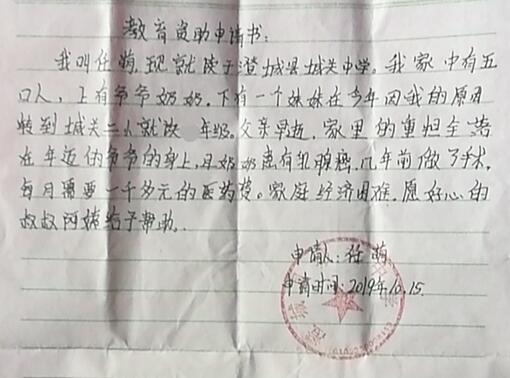 教育资助申请书:
我叫任萌,现就读于澄城县城关中学。我家中有五
口人,上有爷爷奶奶,下有一个妹妹在今年因我的原因
转到城关二小就读 年级。父亲早逝,家里的重担全落
在年迈的爷爷的身上,且奶奶患有乳腺癌,几年前做了手术,
每月需要一千多元的医药费。家庭经济困难,愿好心的
叔叔阿姨给予帮助。
申请人:任萌
申请时间:2019年10.15.